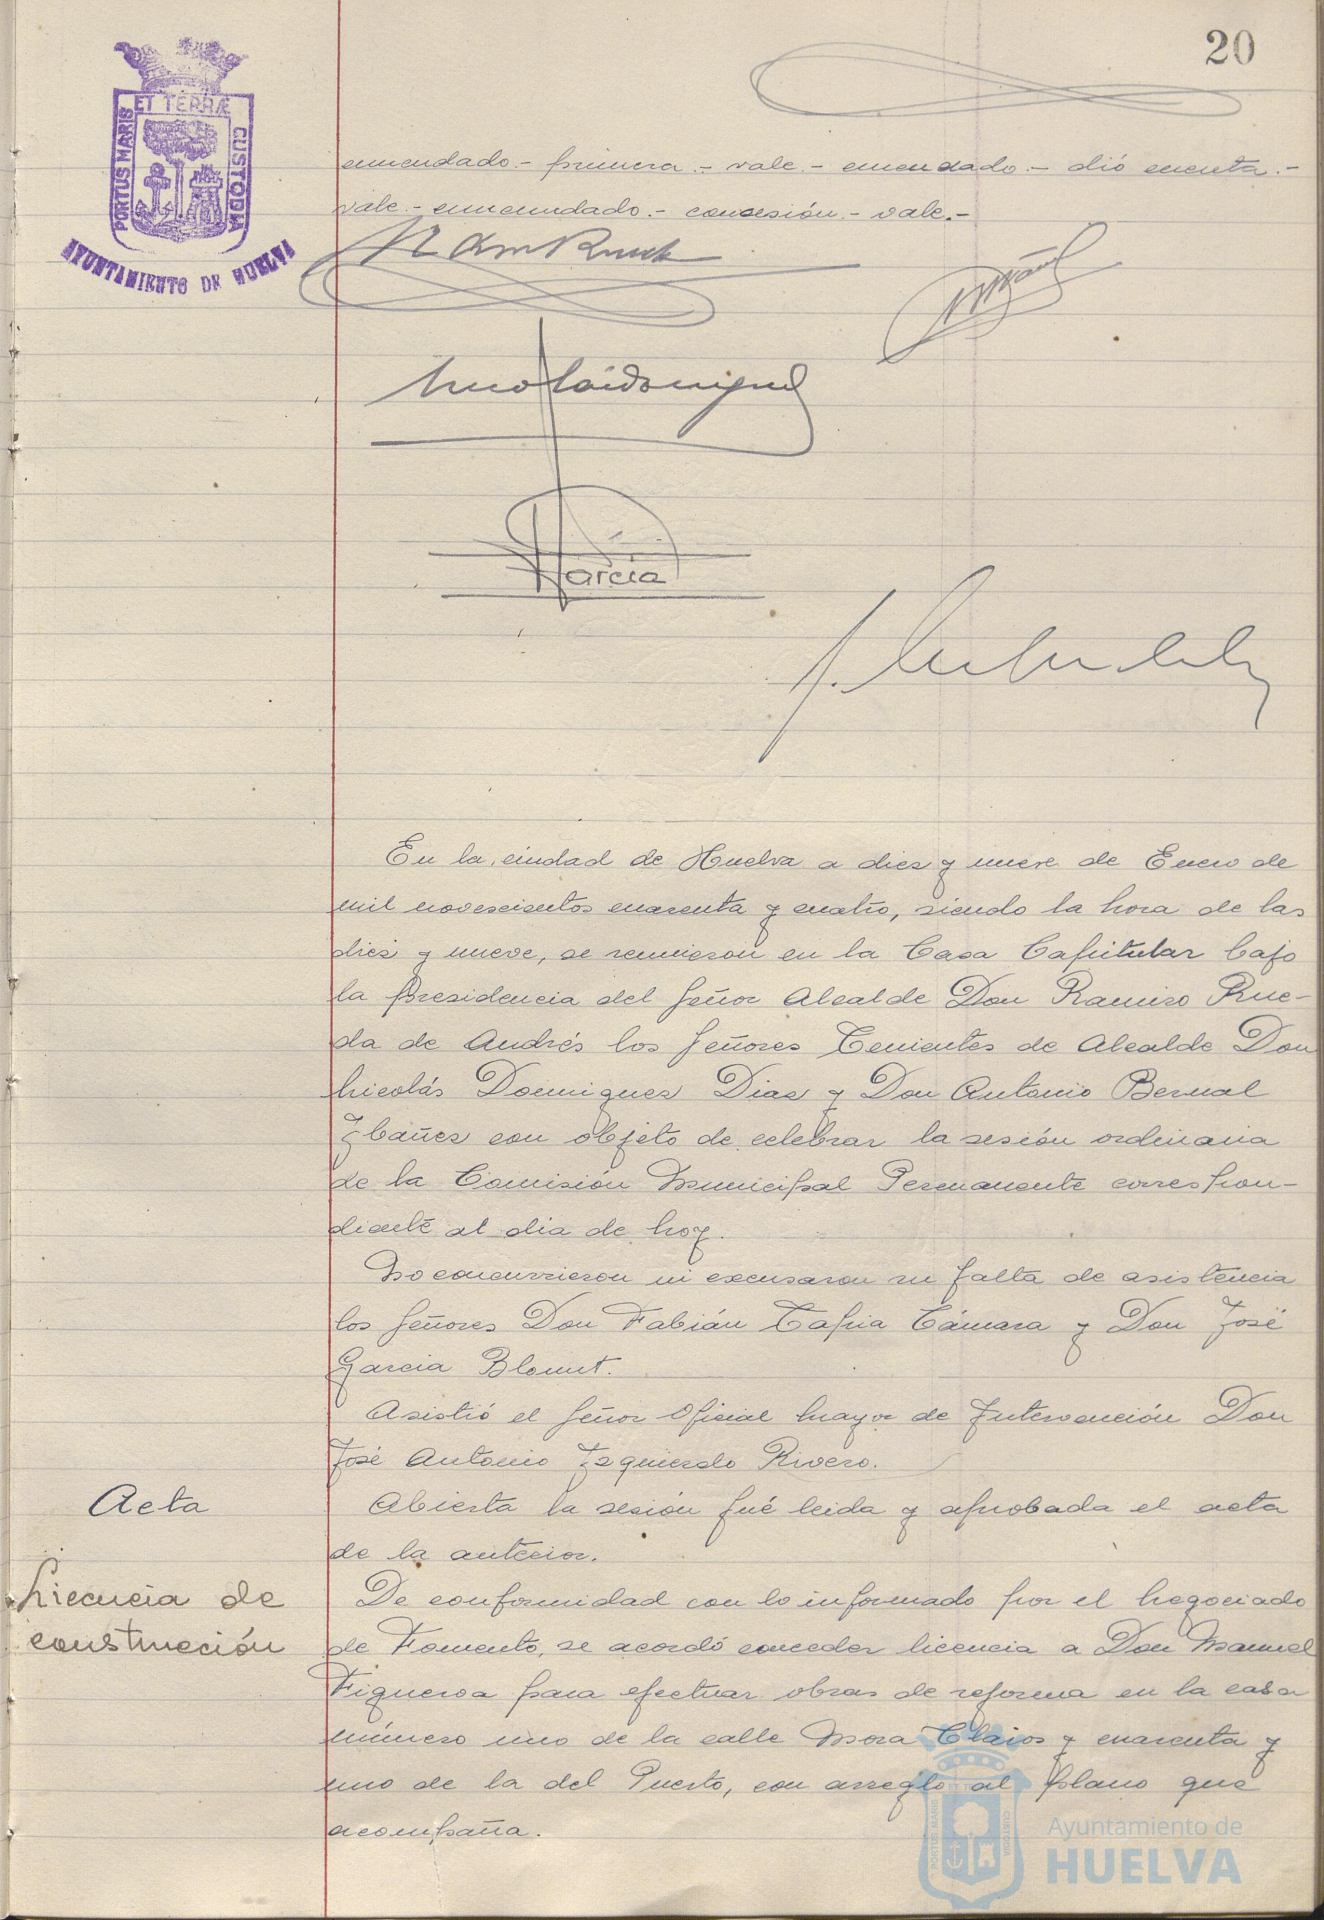 20
PORTUS MARIS ET TERRÆ CUSTODIA
AYUNTAMIENTO DE HUELVA
enmendado.- primera.- vale.- enmendado.- dió cuenta.-
vale.- enmendado.- concesión.- vale.-
García
En la ciudad de Huelva a diez y nueve de Enero de
mil novescientos cuarenta y cuatro, siendo la hora de las
diez y nueve, se reunieron en la Casa Capitular bajo
la presidencia del Señor Alcalde Don Ramiro Rue-
da de Andrés los Señores Tenientes de Alcalde Don
Nicolás Domínguez Diaz y Don Antonio Bernal
Ibañez con objeto de celebrar la sesión ordinaria
de la Comisión Municipal Permanente correspon-
diente al dia de hoy.
No concurrieron ni excusaron su falta de asistencia
los Señores Don Fabián Tapia Cámara y Don José
Garcia Blount.
Asistió el Señor Oficial Mayor de Intervención Don
José Antonio Izquierdo Rivero.
Acta
Abierta la sesión fué leida y aprobada el acta
de la anterior.
Licencia de
construcción
De conformidad con lo informado por el Negociado
de Fomento, se acordó conceder licencia a Don Manuel
Figueroa para efectuar obras de reforma en la casa
número uno de la calle Mora Claros y cuarenta y
uno de la del Puerto, con arreglo al plano que
acompaña.
Ayuntamiento de
HUELVA